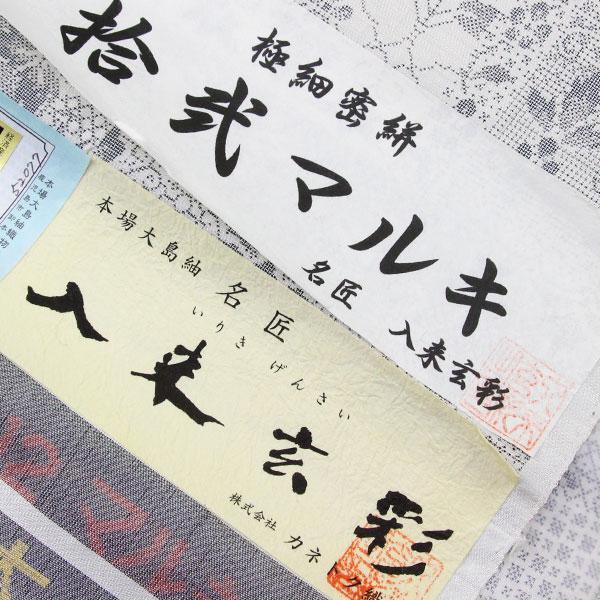 極細密絣
拾弐マルキ
名匠 入来玄彩
本場大島紬 名匠
いりき げんさい
入来玄彩
株式会社 カネ
52077
本場大島紬
12 マルキ
本